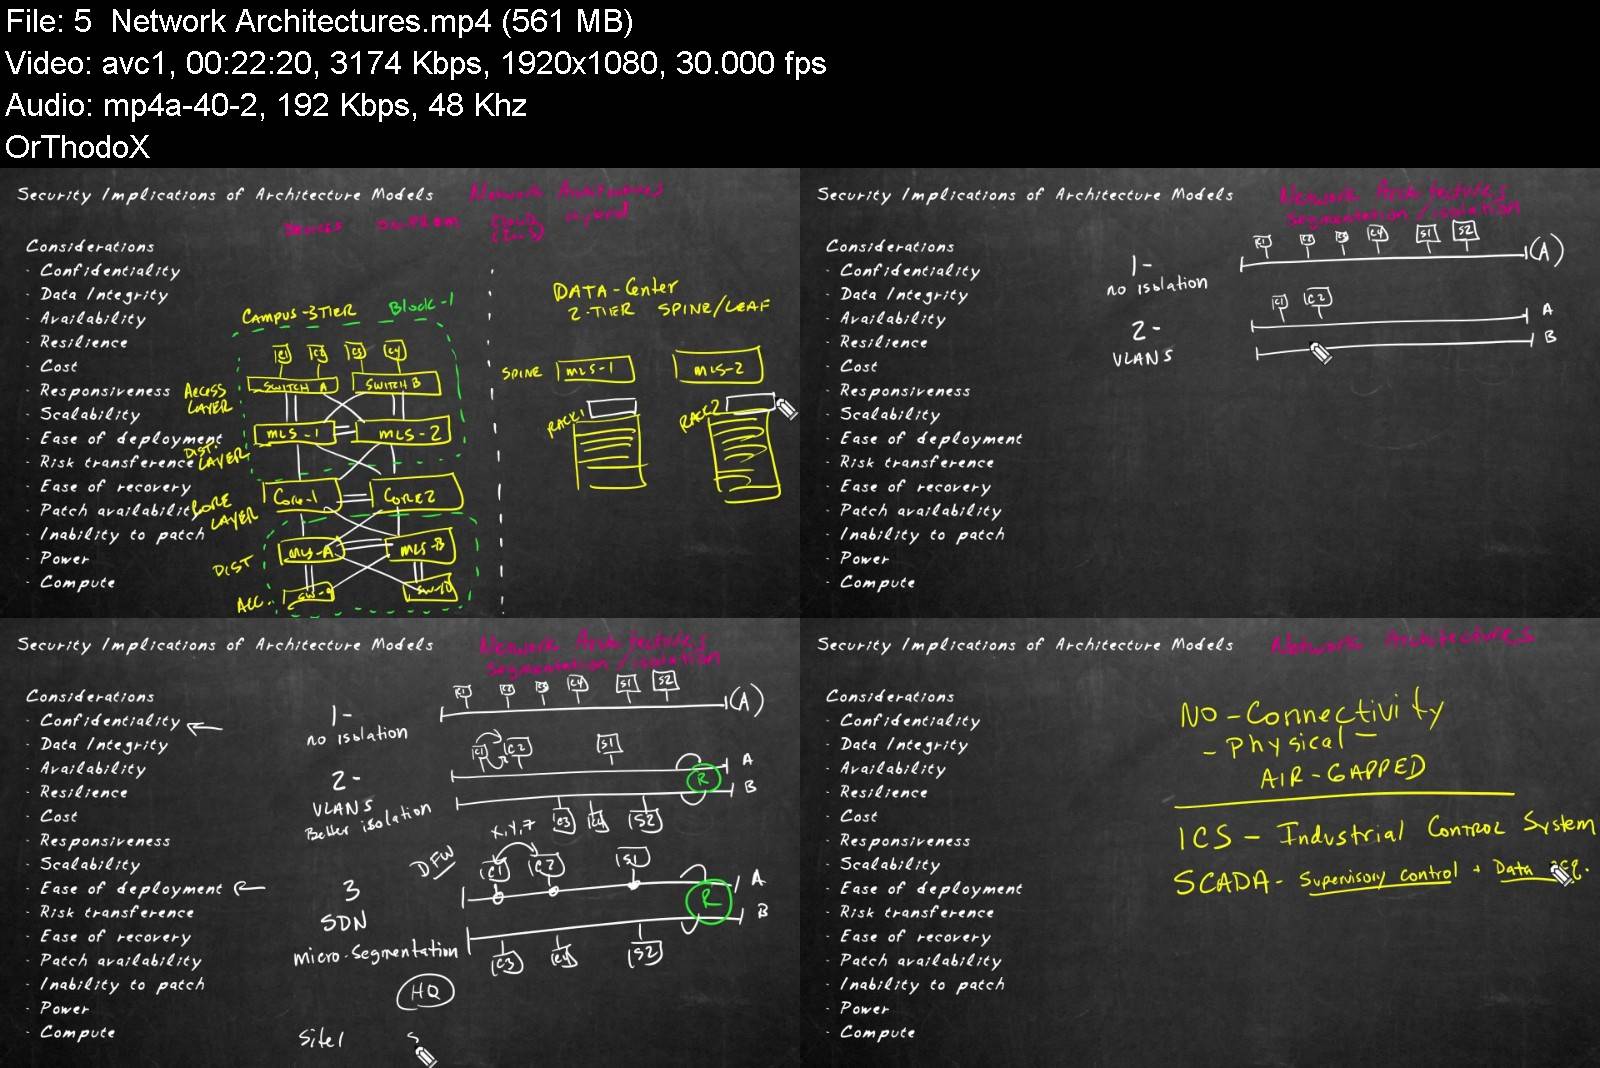 File: 5  Network Architectures.mp4 (561 MB)
Video: avc1, 00:22:20, 3174 Kbps, 1920x1080, 30.000 fps
Audio: mp4a-40-2, 192 Kbps, 48 Khz
OrThodoX
Security Implications of Architecture Models
Network Architectures
Devices on-prem Cloud hybrid
Considerations
- Confidentiality
- Data Integrity
- Availability
- Resilience
- Cost
- Responsiveness
- Scalability
- Ease of deployment
- Risk transference
- Ease of recovery
- Patch availability
- Inability to patch
- Power
- Compute
Campus-3TIER Block-1
C1 C2 C3 C4
Access Layer
SWITCH A SWITCH B
Dist. Layer
MLS-1 MLS-2
Core Layer
Core-1 Core2
DIST
MLS-A MLS-B
ACC.
DATA-Center
2-TIER SPINE/LEAF
SPINE MLS-1 MLS-2
RACK1 RACK2
Security Implications of Architecture Models
Network Architectures
Segmentation/isolation
Considerations
- Confidentiality
- Data Integrity
- Availability
- Resilience
- Cost
- Responsiveness
- Scalability
- Ease of deployment
- Risk transference
- Ease of recovery
- Patch availability
- Inability to patch
- Power
- Compute
1-
no isolation
C1 C2 C3 C4 S1 S2 (A)
2-
VLANS
C1 C2 A
B
Security Implications of Architecture Models
Network Architectures
Segmentation/isolation
Considerations
- Confidentiality
- Data Integrity
- Availability
- Resilience
- Cost
- Responsiveness
- Scalability
- Ease of deployment
- Risk transference
- Ease of recovery
- Patch availability
- Inability to patch
- Power
- Compute
1-
no isolation
C1 C2 C3 C4 S1 S2 (A)
2-
VLANS
Better isolation
C1 C2 S1 R A
B
C3 C4 S2
3
SDN
micro-segmentation
DFW
X,Y,Z
C1 C2 S1 R A
B
C3 C4 S2
HQ
Site1
Security Implications of Architecture Models
Network Architectures
Considerations
- Confidentiality
- Data Integrity
- Availability
- Resilience
- Cost
- Responsiveness
- Scalability
- Ease of deployment
- Risk transference
- Ease of recovery
- Patch availability
- Inability to patch
- Power
- Compute
NO-Connectivity
- Physical -
AIR-GAPPED
ICS - Industrial Control System
SCADA - Supervisory control + Data